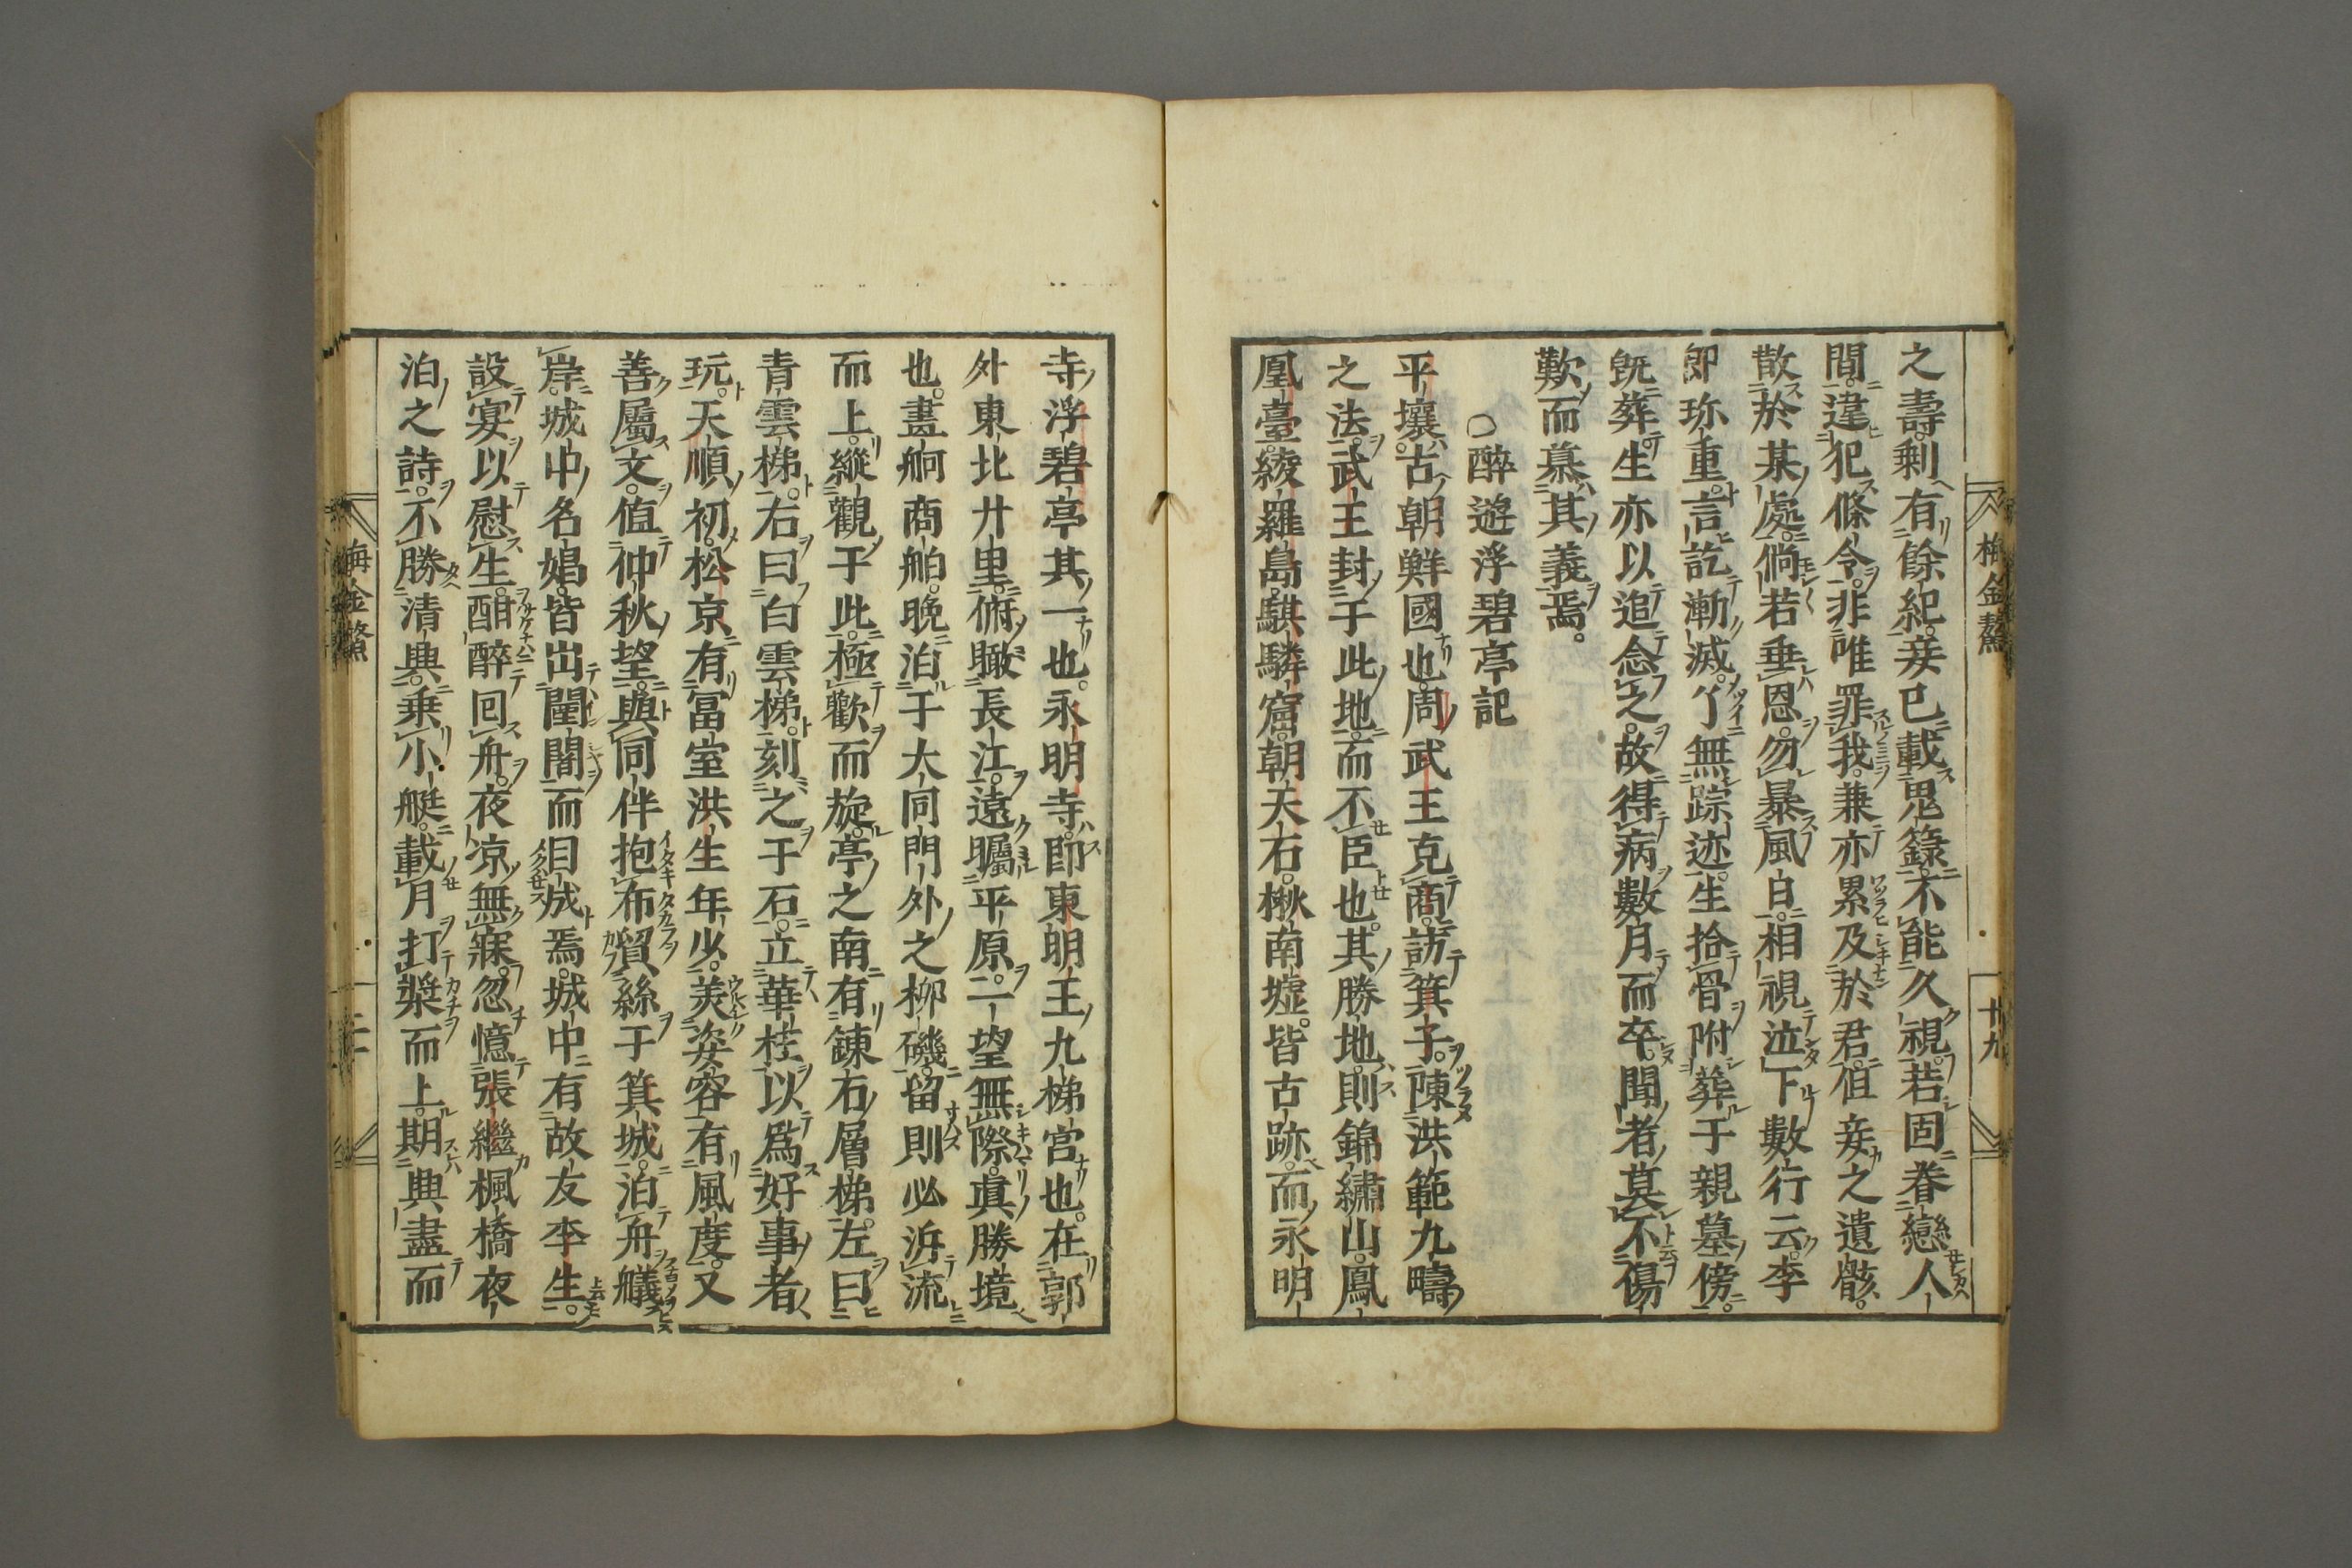 之壽剰有餘紀妾已載鬼籙不能久視若固眷戀人
間違犯條令非唯罪我兼亦累及於君但妾之遺骸
散於某處倘若垂恩勿暴風日相視泣下數行云李
即珎重言訖漸滅了無踪迹生拾骨附葬于親墓傍
旣葬生亦以追念之故得病數月而卒聞者莫不傷
歎而慕其義焉。
〇醉遊浮碧亭記
平壤古朝鮮國也周武王克商訪箕子陳洪範九疇
之法武王封于此地而不臣也其勝地則錦繡山鳳
凰臺綾羅島騏驎窟朝天石楸南墟皆古跡而永明
寺浮碧亭其一也永明寺即東明王九梯宮也在郭
外東北廿里俯瞰長江遠矚平原一望無際真勝境
也畫舸商舶晩泊于大同門外之柳磯留則必泝流
而上縱觀于此極歡而旋亭之南有鍊石層梯左曰
青雲梯右曰白雲梯刻之于石立華柱以爲好事者
玩天順初松京有冨室洪生年少美姿容有風度又
善屬文値仲秋望與同伴抱布貿絲于箕城泊舟艤
岸城中名娼皆出闉闍而目成焉城中有故友李生
設宴以慰生酣醉回舟夜凉無寐忽憶張繼楓橋夜
泊之詩不勝清興乗小艇載月打槳而上期興盡而
梅金鰲
十九
梅金鰲
二十